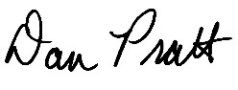 Dan Pratt